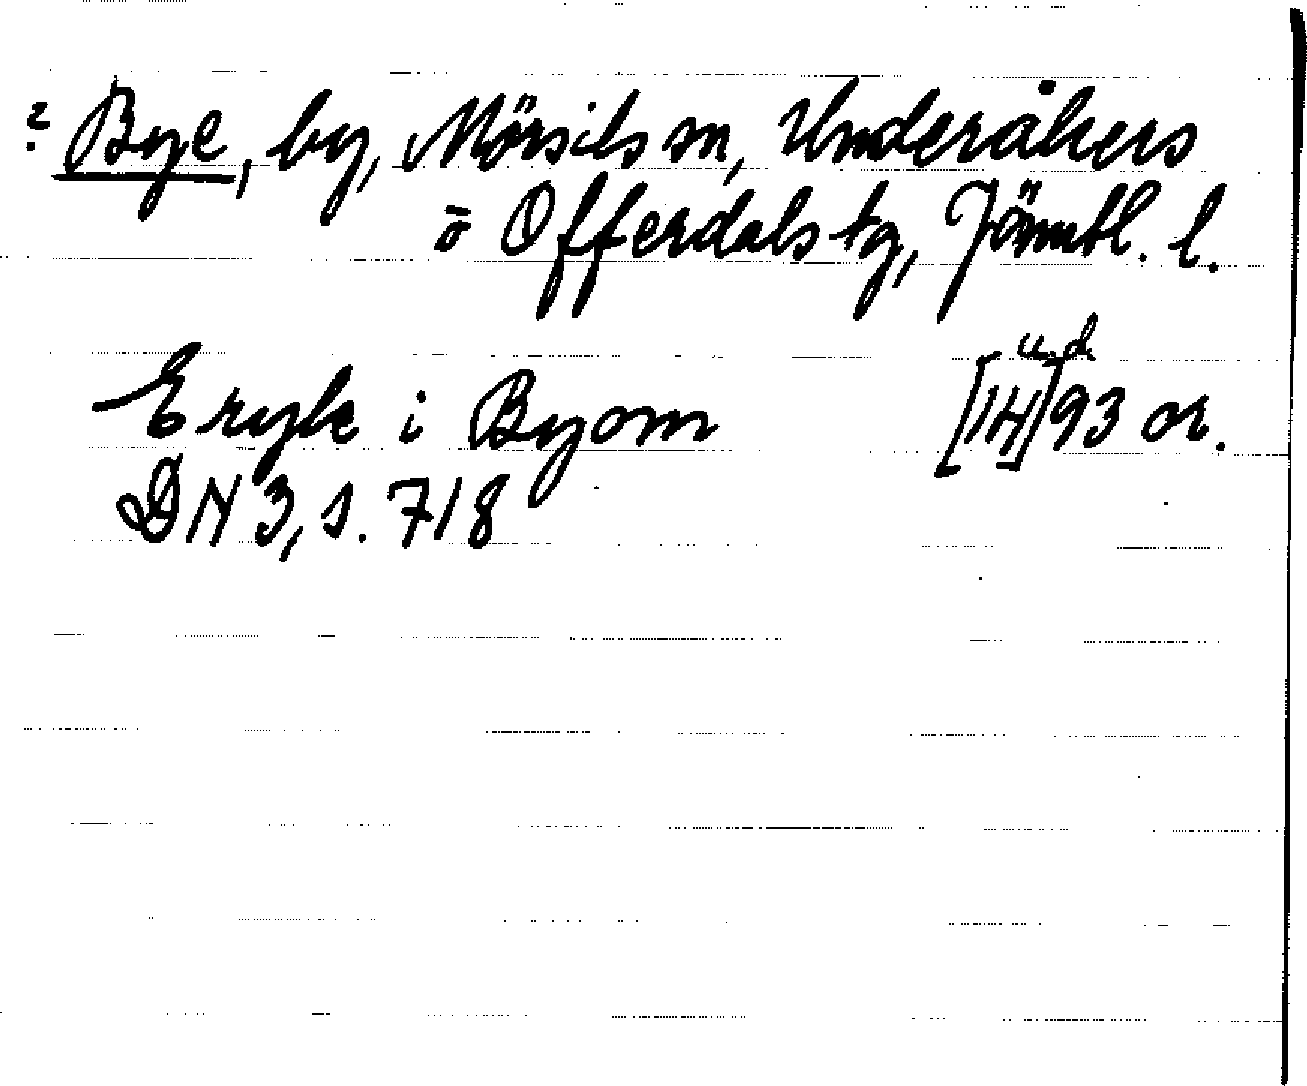 ? Bye, by, Mörsils sn, Undersåkers
o Offerdals tg, Jämtl. l.
u. d.
Eryk i Byom [14]93 or.
DN 3, s. 718